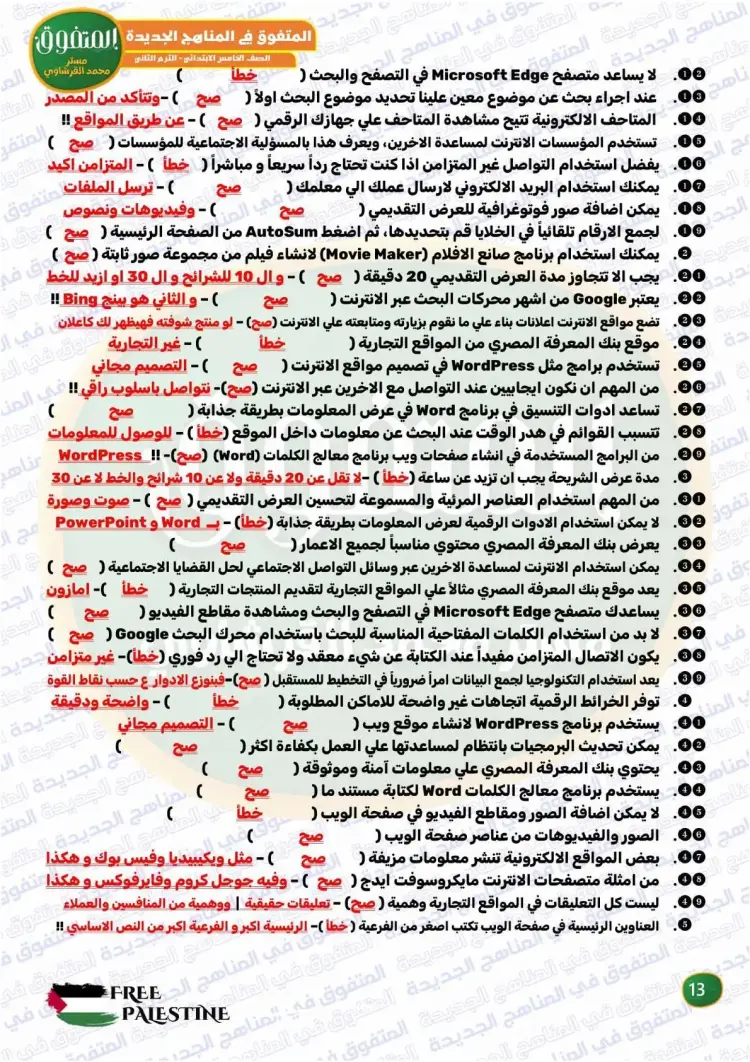 المتفوق في المناهج الجديدة
الصف الخامس الابتدائي - الترم الثاني
المتفوق
مستر
محمد القرشاوي
12. لا يساعد متصفح Microsoft Edge في التصفح والبحث ( خطأ )
13. عند اجراء بحث عن موضوع معين علينا تحديد موضوع البحث اولاً ( صح ) –وتتأكد من المصدر
14. المتاحف الالكترونية تتيح مشاهدة المتاحف علي جهازك الرقمي ( صح ) – عن طريق المواقع !!
15. تستخدم المؤسسات الانترنت لمساعدة الاخرين، ويعرف هذا بالمسؤلية الاجتماعية للمؤسسات ( صح )
16. يفضل استخدام التواصل غير المتزامن اذا كنت تحتاج رداً سريعاً و مباشراً ( خطأ ) – المتزامن اكيد
17. يمكنك استخدام البريد الالكتروني لارسال عملك الي معلمك ( صح ) – ترسل الملفات
18. يمكن اضافة صور فوتوغرافية للعرض التقديمي ( صح ) – وفيديوهات ونصوص
19. لجمع الارقام تلقائياً في الخلايا قم بتحديدها، ثم اضغط AutoSum من الصفحة الرئيسية ( صح )
2. يمكنك استخدام برنامج صانع الافلام (Movie Maker) لانشاء فيلم من مجموعة صور ثابتة ( صح )
21. يجب الا تتجاوز مدة العرض التقديمي 20 دقيقة ( صح ) – و ال 10 للشرائح و ال 30 او ازيد للخط
22. يعتبر Google من اشهر محركات البحث عبر الانترنت ( صح ) – و الثاني هو بينج Bing !!
23. تضع مواقع الانترنت اعلانات بناء علي ما نقوم بزيارته ومتابعته علي الانترنت (صح) – لو منتج شوفته فهيظهر لك كاعلان
24. موقع بنك المعرفة المصري من المواقع التجارية ( خطأ ) – غير التجارية
25. تستخدم برامج مثل WordPress في تصميم مواقع الانترنت ( صح ) – التصميم مجاني
26. من المهم ان نكون ايجابيين عند التواصل مع الاخرين عبر الانترنت (صح)– نتواصل باسلوب راقي !!
27. تساعد ادوات التنسيق في برنامج Word في عرض المعلومات بطريقة جذابة ( صح )
28. تتسبب القوائم في هدر الوقت عند البحث عن معلومات داخل الموقع (خطأ ) – للوصول للمعلومات
29. من البرامج المستخدمة في انشاء صفحات ويب برنامج معالج الكلمات (Word) (صح)– !! WordPress
3. مدة عرض الشريحة يجب ان تزيد عن ساعة (خطأ ) –لا تقل عن 20 دقيقة ولا عن 10 شرائح والخط لا عن 30
31. من المهم استخدام العناصر المرئية والمسموعة لتحسين العرض التقديمي ( صح ) – صوت وصورة
32. لا يمكن استخدام الادوات الرقمية لعرض المعلومات بطريقة جذابة (خطأ) – بـ Word و PowerPoint
33. يعرض بنك المعرفة المصري محتوي مناسباً لجميع الاعمار ( صح )
34. يمكن استخدام الانترنت لمساعدة الاخرين عبر وسائل التواصل الاجتماعي لحل القضايا الاجتماعية ( صح )
35. يعد موقع بنك المعرفة المصري مثالاً علي المواقع التجارية لتقديم المنتجات التجارية ( خطأ )– امازون
36. يساعدك متصفح Microsoft Edge في التصفح والبحث ومشاهدة مقاطع الفيديو ( صح )
37. لا بد من استخدام الكلمات المفتاحية المناسبة للبحث باستخدام محرك البحث Google ( صح )
38. يكون الاتصال المتزامن مفيداً عند الكتابة عن شيء معقد ولا تحتاج الي رد فوري (خطأ)– غير متزامن
39. يعد استخدام التكنولوجيا لجمع البيانات امراً ضرورياً في التخطيط للمستقبل ( صح)–فينوزع الادوار ع حسب نقاط القوة
4. توفر الخرائط الرقمية اتجاهات غير واضحة للاماكن المطلوبة ( خطأ ) – واضحة ودقيقة
41. يستخدم برنامج WordPress لانشاء موقع ويب ( صح ) – التصميم مجاني
42. يمكن تحديث البرمجيات بانتظام لمساعدتها علي العمل بكفاءة اكثر ( صح )
43. يحتوي بنك المعرفة المصري علي معلومات آمنة وموثوقة ( صح )
44. يستخدم برنامج معالج الكلمات Word لكتابة مستند ما ( صح )
45. لا يمكن اضافة الصور ومقاطع الفيديو في صفحة الويب ( خطأ )
46. الصور والفيديوهات من عناصر صفحة الويب ( صح )
47. بعض المواقع الالكترونية تنشر معلومات مزيفة ( صح ) – مثل ويكيبيديا وفيس بوك و هكذا
48. من امثلة متصفحات الانترنت مايكروسوفت ايدج ( صح ) – وفيه جوجل كروم وفايرفوكس و هكذا
49. ليست كل التعليقات في المواقع التجارية وهمية ( صح) – تعليقات حقيقية | ووهمية من المنافسين والعملاء
5. العناوين الرئيسية في صفحة الويب تكتب اصغر من الفرعية ( خطأ )– الرئيسية اكبر و الفرعية اكبر من النص الاساسي !!
FREE
PALESTINE
13